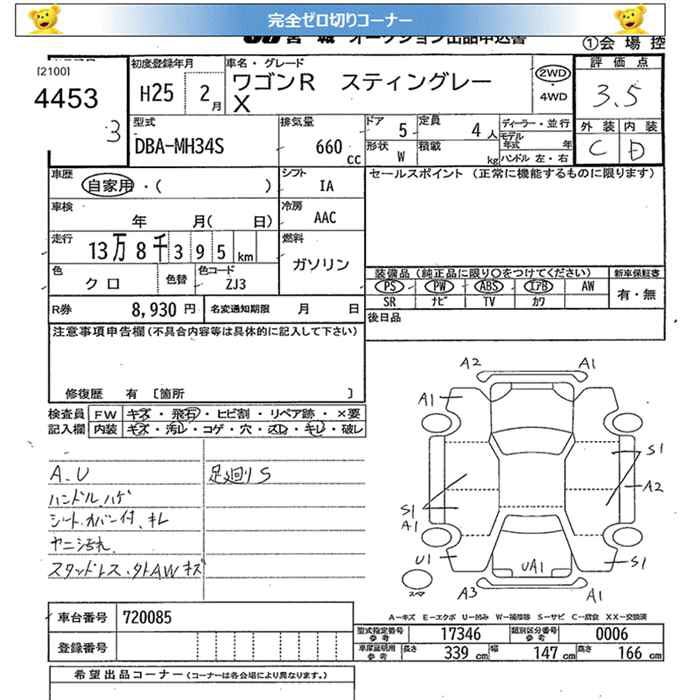 完全ゼロ切りコーナー
オークション出品申込書 ①会場控
[2100]
4453
3
初度登録年月
H25 2月
車名・グレード
ワゴンR スティングレー
X
2WD
・4WD
評価点
3.5
外装 内装
C D
型式
DBA-MH34S
排気量
660 cc
ドア 5
定員 4人
形状 W
積載 kg
ディーラー・並行
モデル年式 年
ハンドル 左・右
車歴
自家用・( )
シフト
IA
セールスポイント(正常に機能するものに限ります)
車検
年 月( 日)
冷房
AAC
走行
13万8千395km
燃料
ガソリン
色
クロ
色替
色コード
ZJ3
装備品(純正品に限り○をつけてください) 新車保証書
PS PW ABS エアB AW
SR ナビ TV カワ
有・無
R券 8,930円 名変通知期限 月 日
後日品
注意事項申告欄(不具合内容等は具体的に記入して下さい)
修復歴 有 [箇所 ]
検査員 FW キズ・飛石・ヒビ割・リペア跡・×要
記入欄 内装 キズ・汚レ・コゲ・穴・スレ・キレ・破レ
A.U 足廻りS
ハンドル.ハゲ
シート.カバー付.キレ
ヤニ汚れ.
スタッドレス.外AWキズ
A2 A1
A1
S1
A2
S1
A1
U1 UA1 S1
スペア A3 A1
A−キズ E−エクボ U−凹み W−補修跡 S−サビ C−腐食 XX−交換済
車台番号 720085
登録番号
型式指定番号 参考 17346 類別区分番号 参考 0006
車庫証明用 参考 長さ 339cm 幅 147cm 高さ 166cm
希望出品コーナー(コーナーは各会場により異なります。)